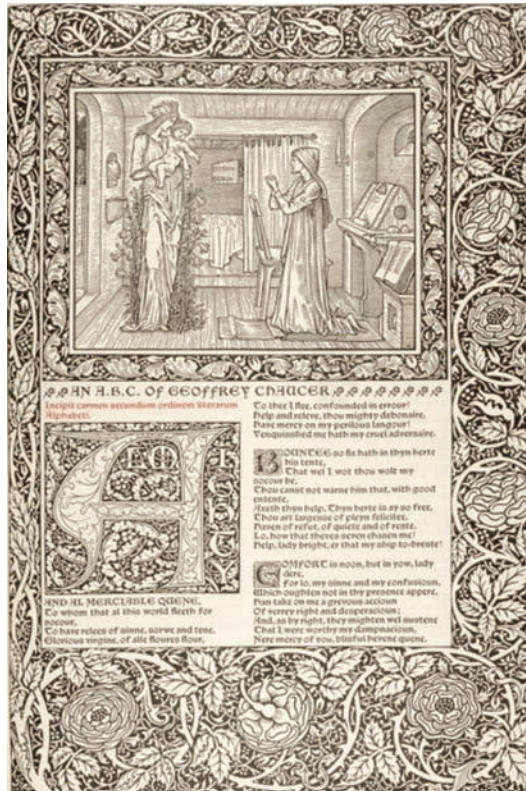 AN A.B.C. OF GEOFFREY CHAUCER
Incipit carmen secundum ordinem literarum
Alphabeti.
ALMIGHTY
AND AL MERCIABLE QUENE,
To whom that al this world fleeth for
socour,
To have relees of sinne, sorwe and tene,
Glorious virgine, of alle floures flour,
To thee I flee, confounded in errour!
Help and releve, thou mighty debonaire,
Have mercy on my perilous langour!
Venquisshed me hath my cruel adversaire.
BOUNTEE so fix hath in thyn herte
his tente,
That wel I wot thou wolt my
socour be,
Thou canst not warne him that, with good
entente,
Axeth thyn help. Thyn herte is ay so free,
Thou art largesse of pleyn felicitee,
Haven of refut, of quiete and of reste.
Lo, how that theves seven chasen me!
Help, lady bright, er that my ship to-breste!
COMFORT is noon, but in yow, lady
dere,
For lo, my sinne and my confusioun,
Which oughten not in thy presence appere,
Han take on me a grevous accioun
Of verrey right and desperacioun;
And, as by right, they mighten wel sustene
That I were worthy my dampnacioun,
Nere mercy of you, blisful hevene quene.